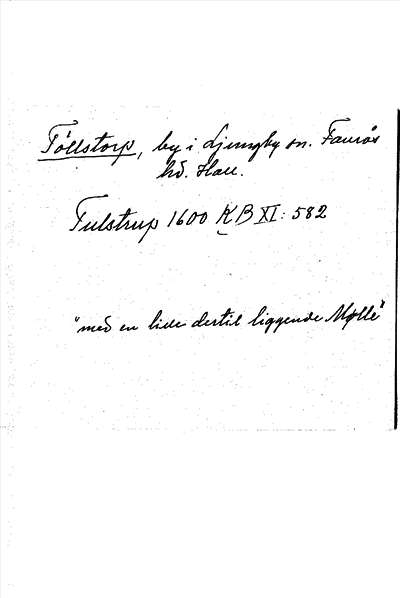 Töllstorp, by i Ljungby sn. Faurås
hd. Hall.
Tulstrup 1600 KB XI: 582
"med en liden dertil liggende Mølle"